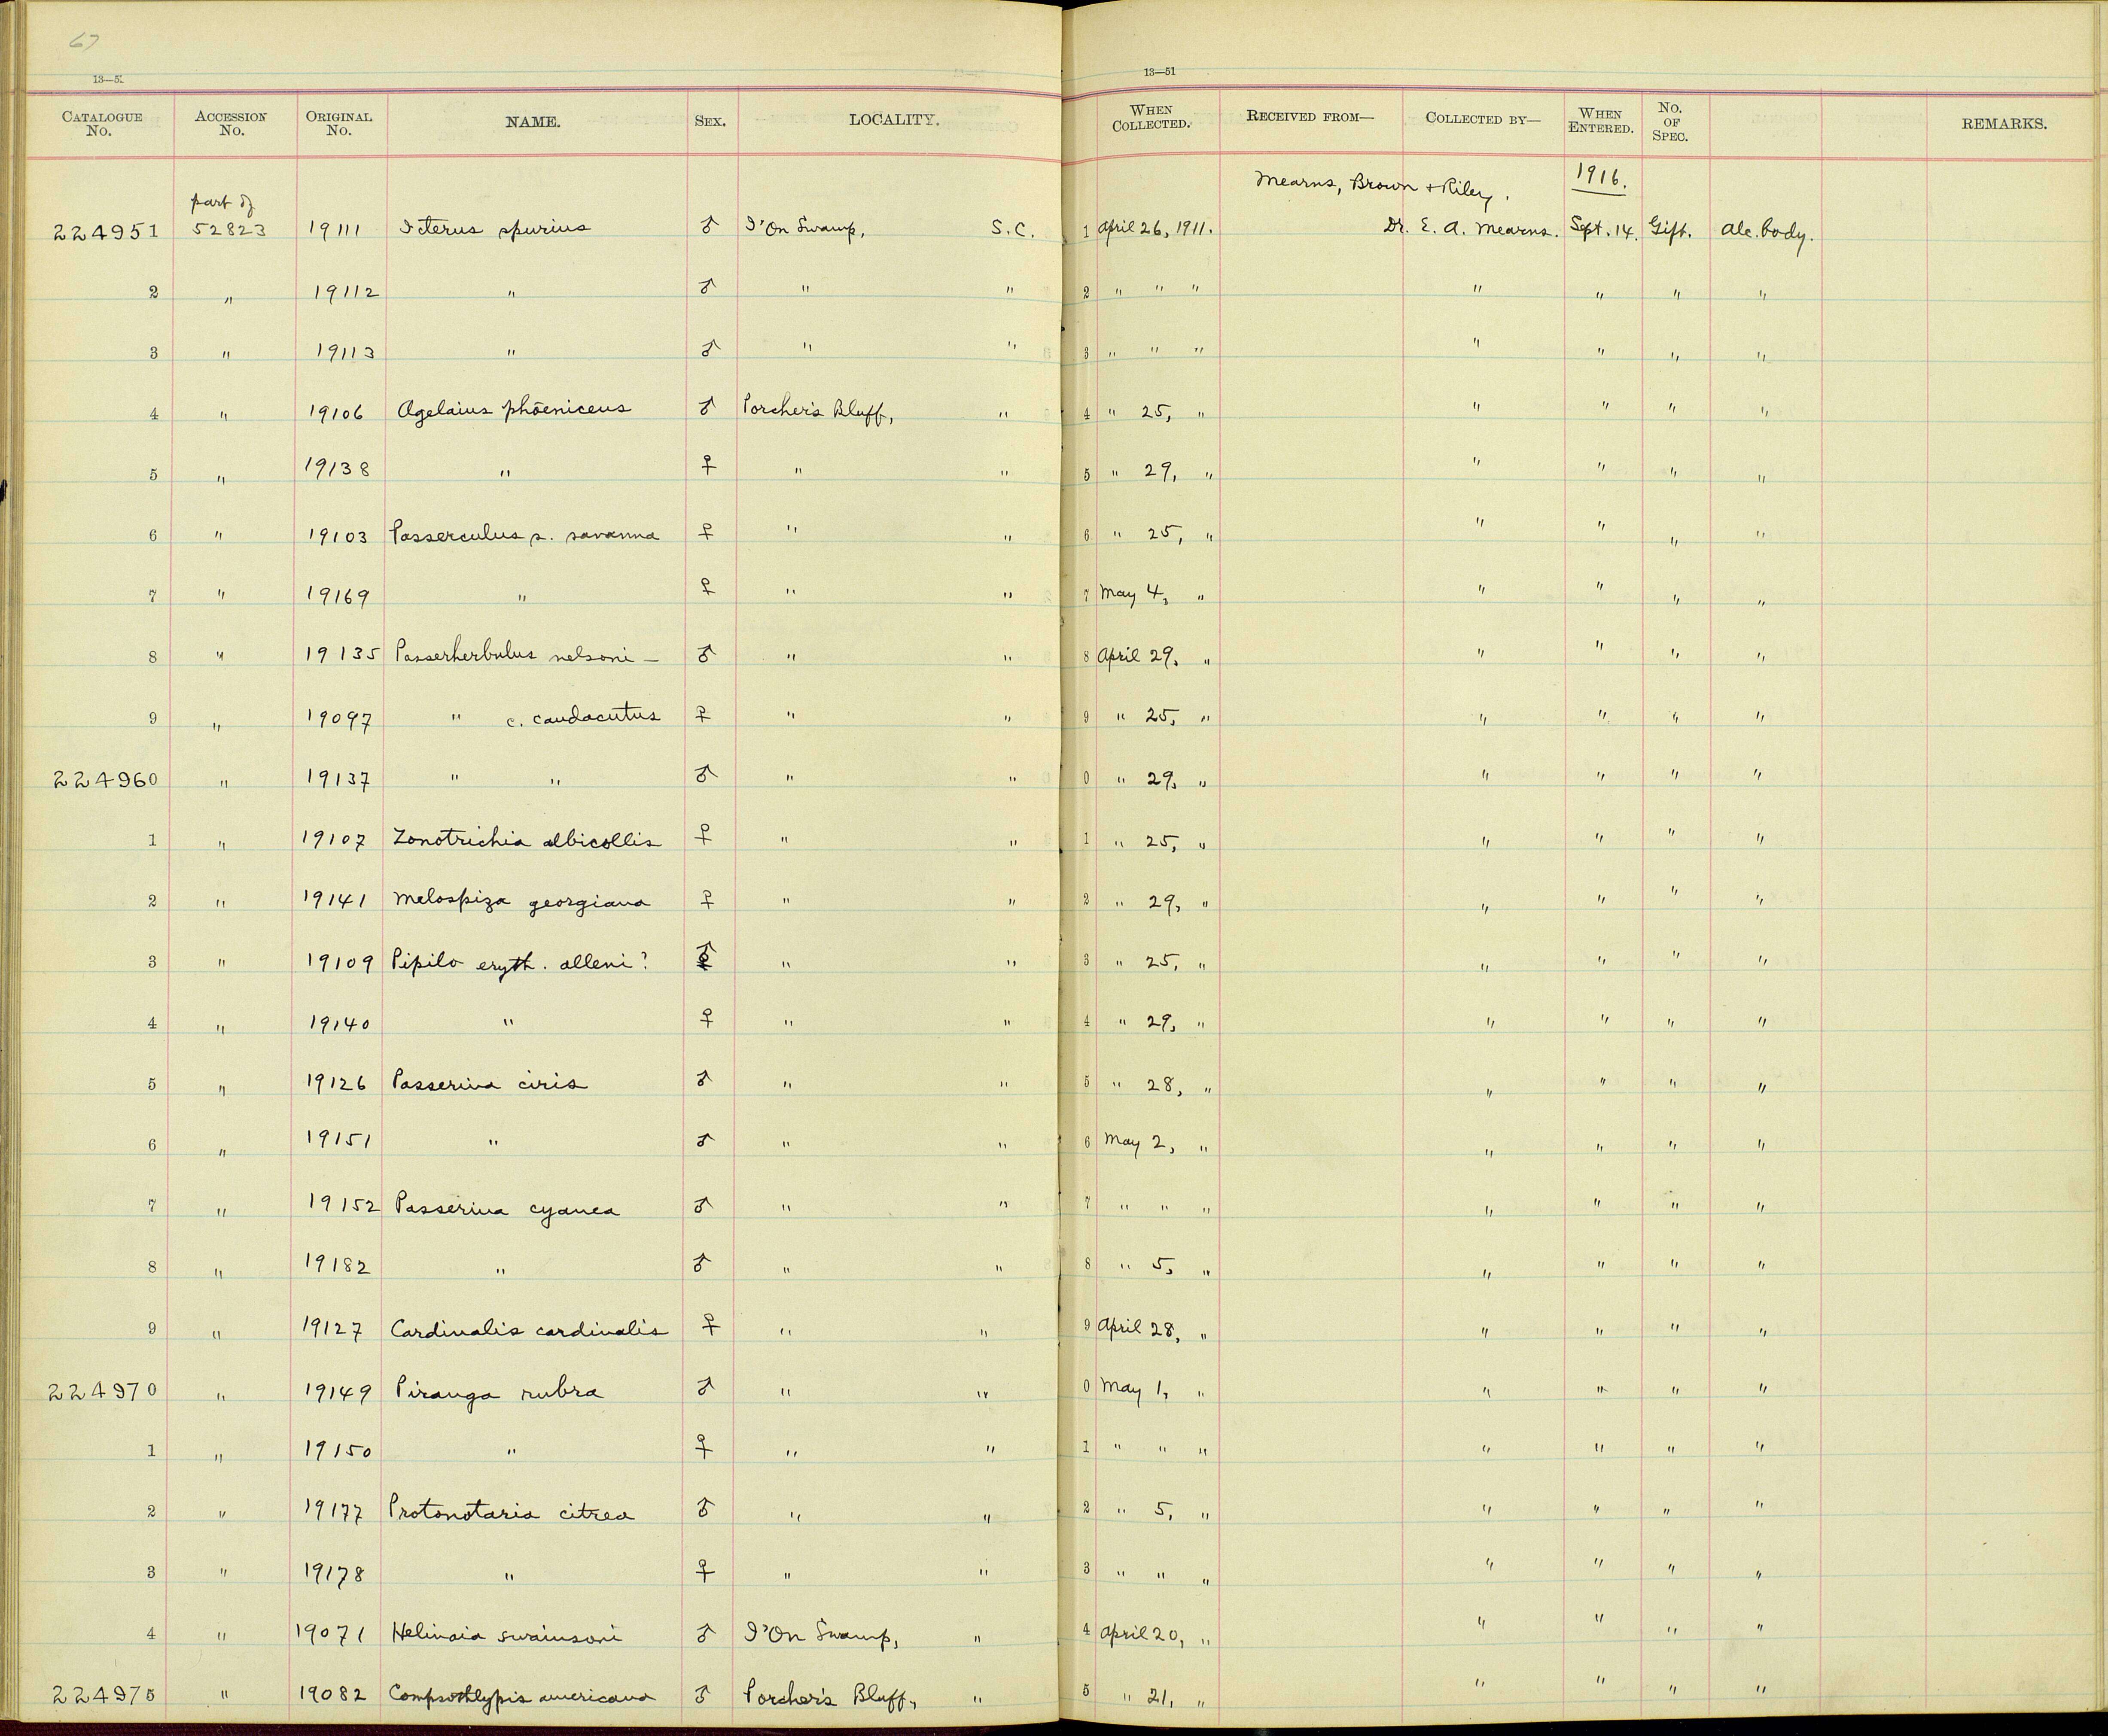 67
13—5 13—51
CATALOGUE No. ACCESSION No. ORIGINAL No. NAME. SEX. LOCALITY. WHEN COLLECTED. RECEIVED FROM— COLLECTED BY— WHEN ENTERED. No. OF SPEC. REMARKS.
Mearns, Brown + Riley. 1916.
part of
224951 52823 19111 Icterus spurius ♂ I'On Swamp, S.C. 1 April 26, 1911. Dr. E. A. Mearns. Sept. 14. Gift. Alc. body.
2 " 19112 " ♂ " " 2 " " " " " " "
3 " 19113 " ♂ " " 3 " " " " " " "
4 " 19106 Agelaius phoeniceus ♂ Porcher's Bluff, " 4 " 25, " " " " "
5 " 19138 " ♀ " " 5 " 29, " " " " "
6 " 19103 Passerculus s. savanna ♀ " " 6 " 25, " " " " "
7 " 19169 " ♀ " " 7 May 4, " " " " "
8 " 19135 Passerherbulus nelsoni — ♂ " " 8 April 29, " " " " "
9 " 19097 " c. caudacutus ♀ " " 9 " 25, " " " " "
224960 " 19137 " " ♂ " " 0 " 29, " " " " "
1 " 19107 Zonotrichia albicollis ♀ " " 1 " 25, " " " " "
2 " 19141 Melospiza georgiana ♀ " " 2 " 29, " " " " "
3 " 19109 Pipilo eryth. alleni? ♂ " " 3 " 25, " " " " "
4 " 19140 " ♀ " " 4 " 29, " " " " "
5 " 19126 Passerina ciris ♂ " " 5 " 28, " " " " "
6 " 19151 " ♂ " " 6 May 2, " " " " "
7 " 19152 Passerina cyanea ♂ " " 7 " " " " " " "
8 " 19182 " ♂ " " 8 " 5, " " " " "
9 " 19127 Cardinalis cardinalis ♀ " " 9 April 28, " " " " "
224970 " 19149 Piranga rubra ♂ " " 0 May 1, " " " " "
1 " 19150 " ♀ " " 1 " " " " " " "
2 " 19177 Protonotaria citrea ♂ " " 2 " 5, " " " " "
3 " 19178 " ♀ " " 3 " " " " " " "
4 " 19071 Helinaia swainsoni ♂ I'On Swamp, " 4 April 20, " " " " "
224975 " 19082 Compsothlypis americana ♂ Porcher's Bluff, " 5 " 21, " " " " "